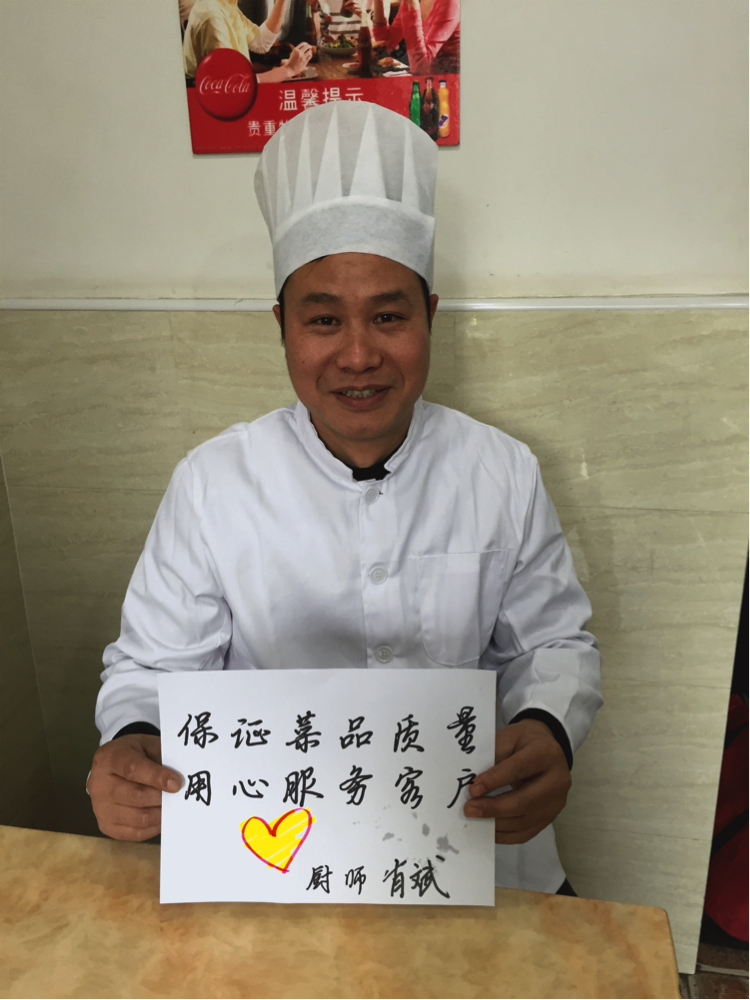 Coca-Cola
温馨提示
贵重
保证菜品质量
用心服务客户
厨师肖斌